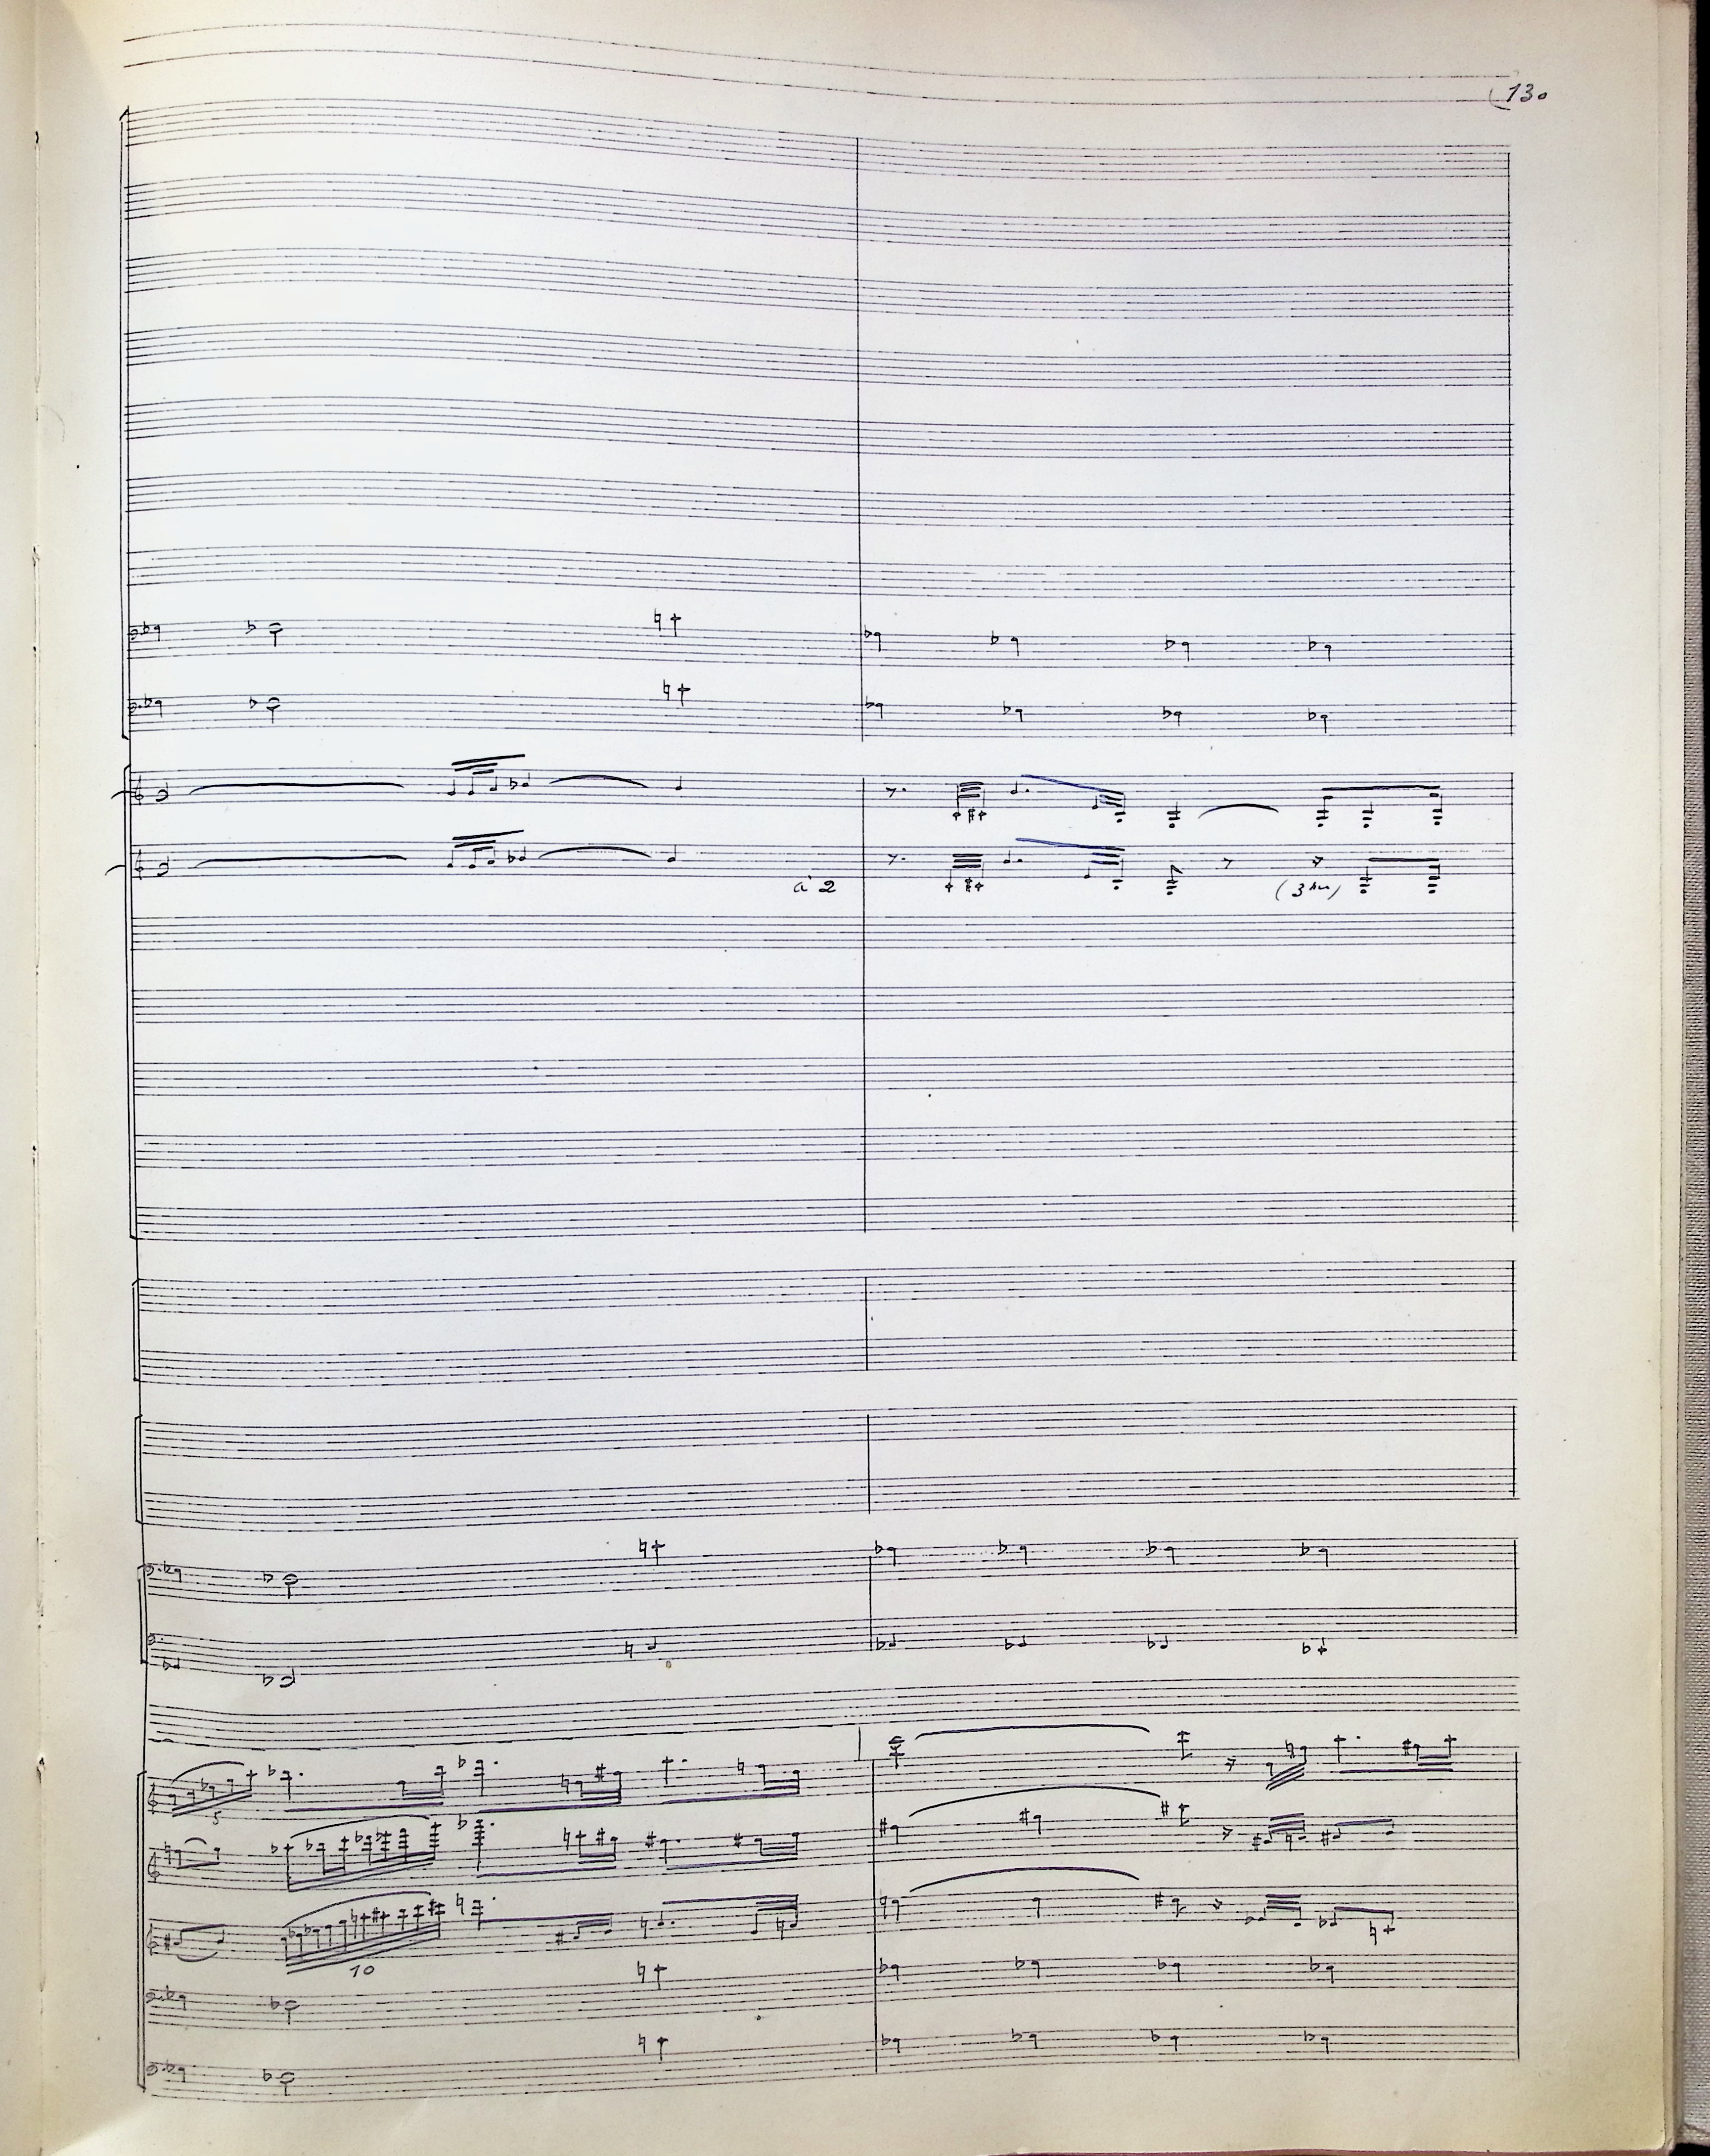 (130
a' 2
(3
5
10